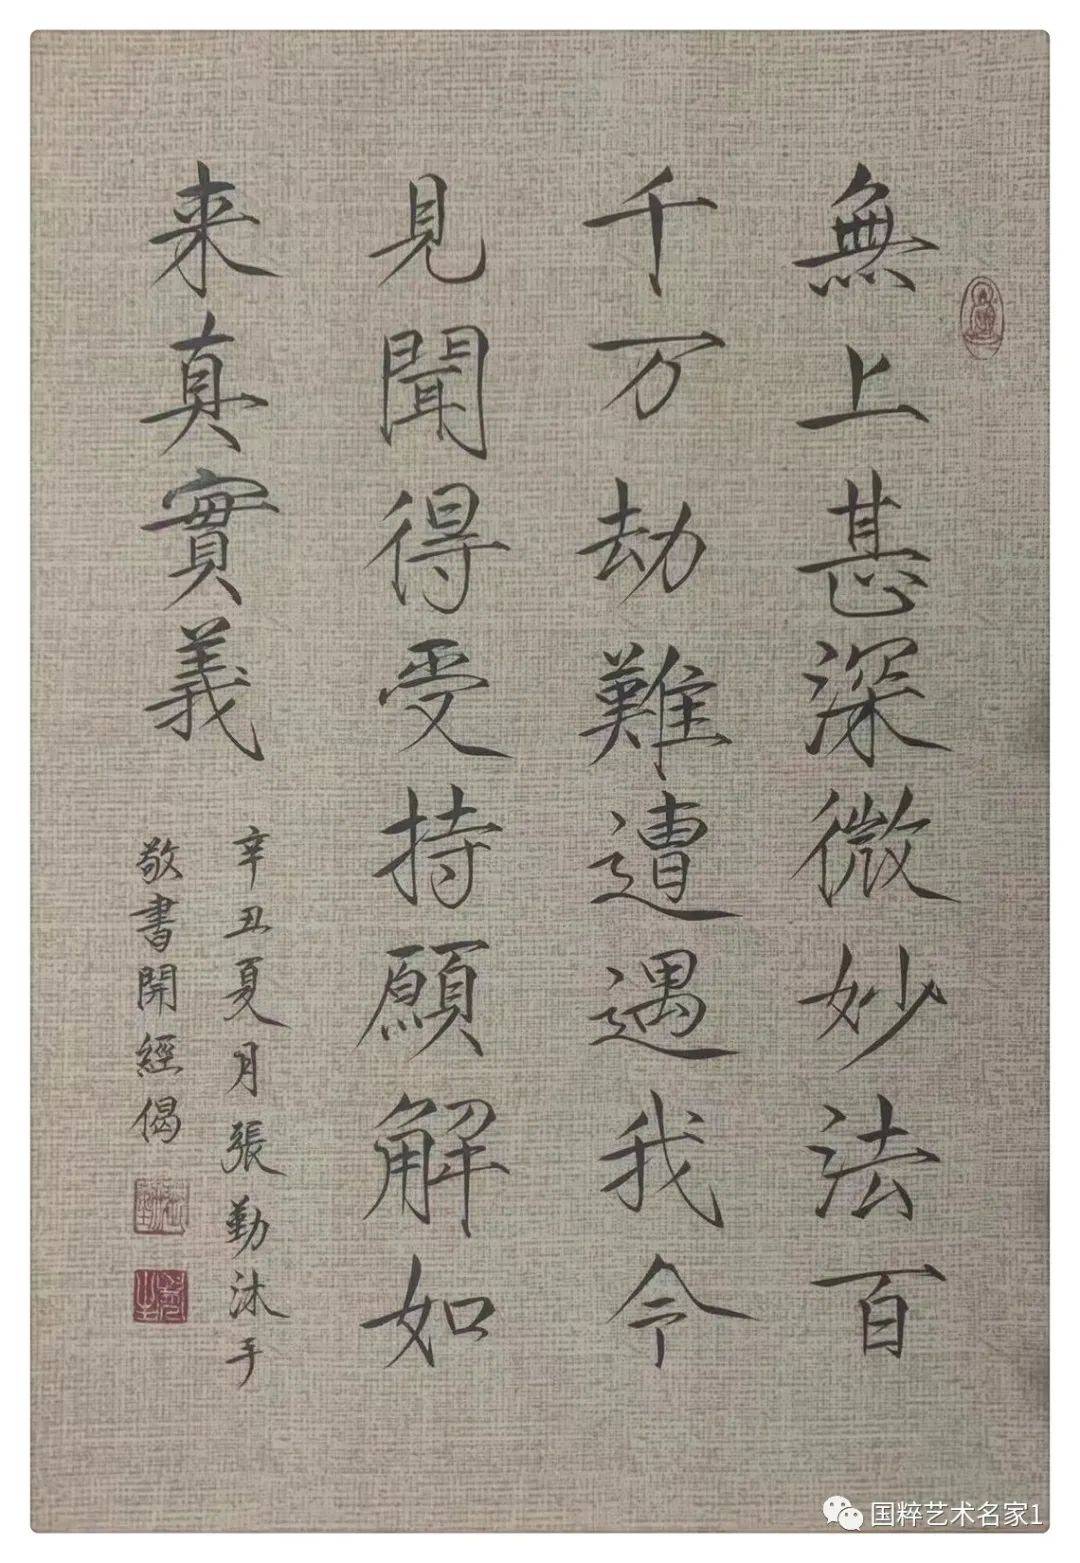 無上甚深微妙法百
千万劫難遭遇我今
見聞得受持願解如
来真實義
辛丑夏月張勤沐手
敬書開經偈
国粹艺术名家1